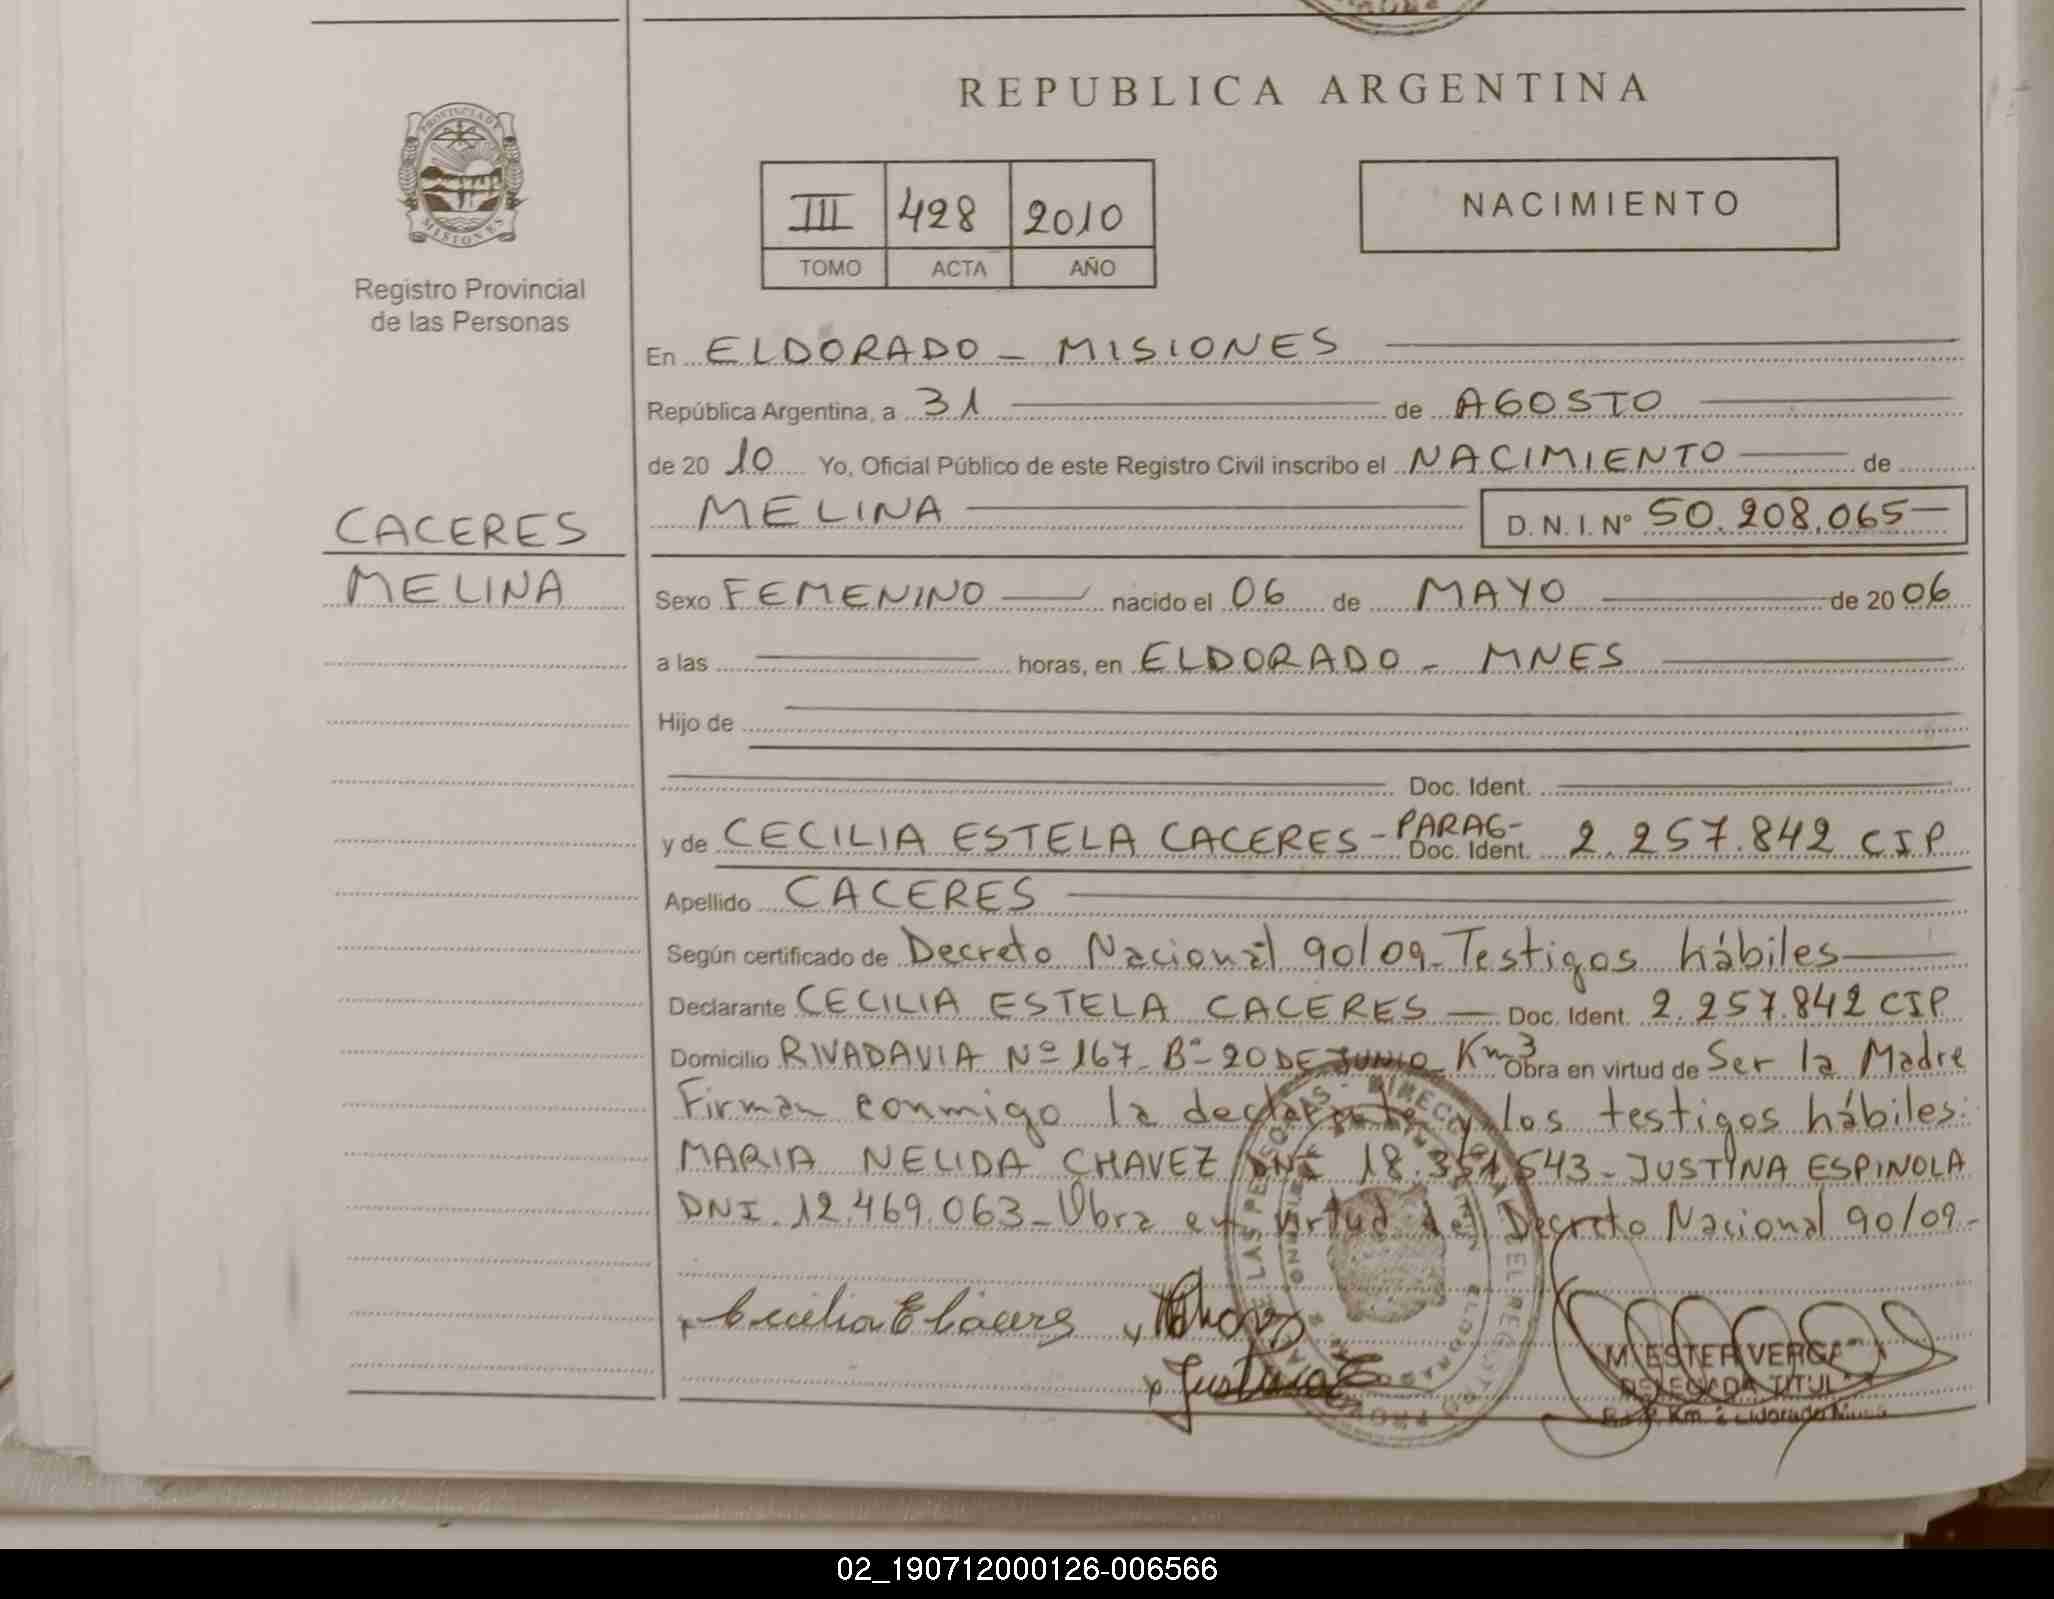 REPUBLICA ARGENTINA
PROVINCIA DE
MISIONES
Registro Provincial
de las Personas
III 428 2010
TOMO ACTA AÑO
NACIMIENTO
En ELDORADO - MISIONES
República Argentina, a 31 de AGOSTO
de 20 10 Yo, Oficial Público de este Registro Civil inscribo el NACIMIENTO de
MELINA D. N. I. Nº 50.208.065
CACERES
MELINA
Sexo FEMENINO nacido el 06 de MAYO de 20 06
a las horas, en ELDORADO - MNES
Hijo de
Doc. Ident.
y de CECILIA ESTELA CACERES - PARAG- Doc. Ident. 2.257.842 CIP
Apellido CACERES
Según certificado de Decreto Nacional 90/09 - Testigos hábiles
Declarante CECILIA ESTELA CACERES Doc. Ident. 2.257.842 CIP
Domicilio RIVADAVIA Nº 167 - Bº - 20 DE JUNIO Km 3 Obra en virtud de Ser la Madre
Firman conmigo la declarante y los testigos hábiles:
MARIA NELIDA CHAVEZ DNI 18.351.543 - JUSTINA ESPINOLA
DNI. 12.469.063 - Obra en virtud del Decreto Nacional 90/09 -
Cecilia E Caceres
Justina E
M. ESTER VERGA
DELEGADA TITUL
02_190712000126-006566